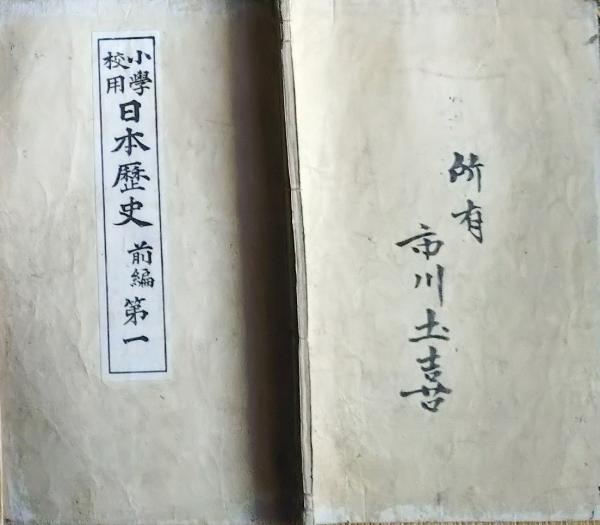 小學校用日本歷史 前編 第一
所有
市川土喜